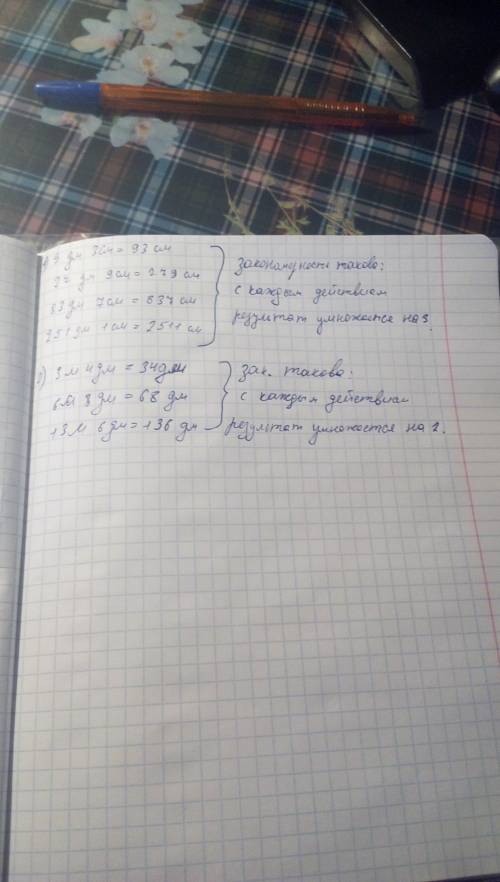 9 дм 3см = 93 см
27 дм 9см = 279 см
83 дм 7см = 837 см
251 дм 1 см = 2511 см
закономерность такова:
с каждым действием
результат умножается на 3.
3 м 4 дм = 34 дм
6 м 8 дм = 68 дм
13 м 6 дм = 136 дм
зак. такова:
с каждым действием
результат умножается на 2.